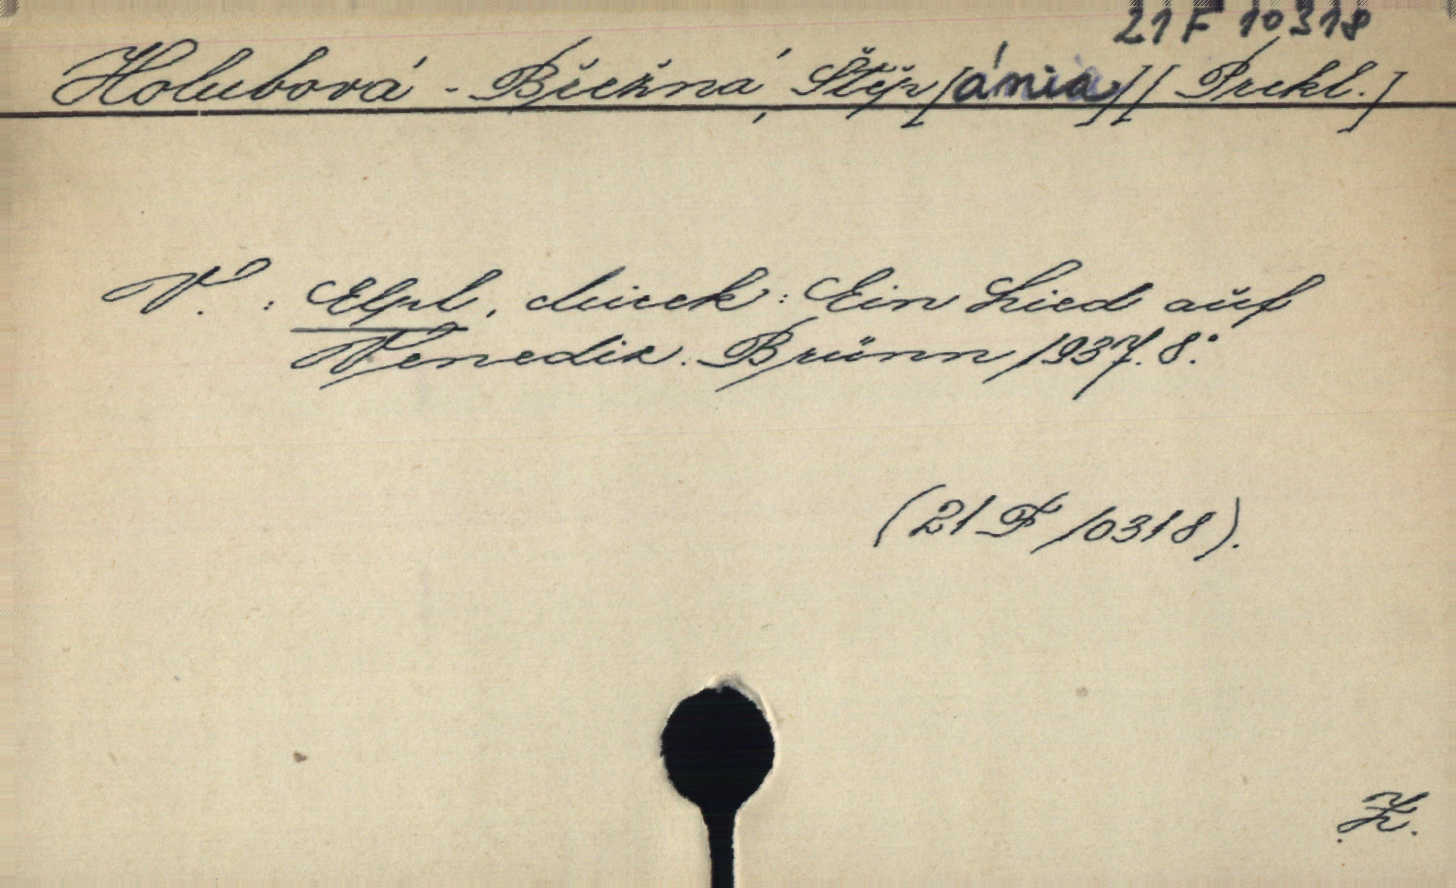 21 F 10318
Holubová - Běežná, Štěp[ánia] [Prekl.]
V. : Elpl, Mirek: Ein Lied auf
Venedig. Brünn 1937. 8.°
(21 F 10318).
Ž.